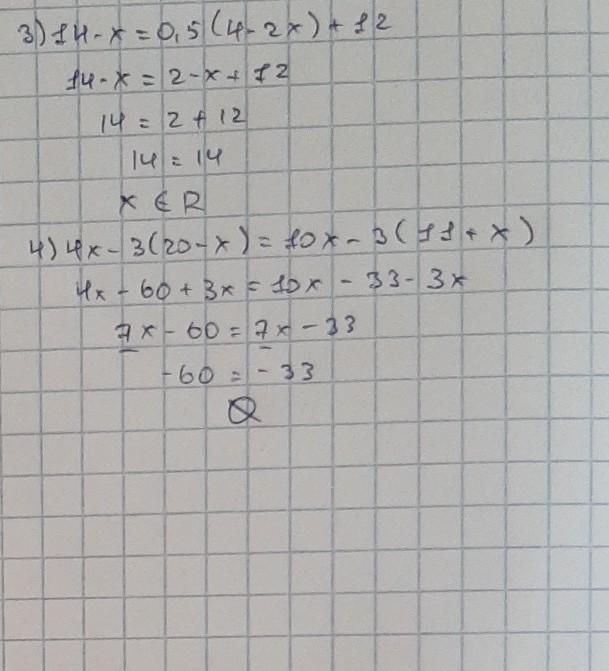 3) 14 - x = 0,5(4 - 2x) + 12
14 - x = 2 - x + 12
14 = 2 + 12
14 = 14
x ∈ R
4) 4x - 3(20 - x) = 10x - 3(11 + x)
4x - 60 + 3x = 10x - 33 - 3x
7x - 60 = 7x - 33
-60 = -33
∅